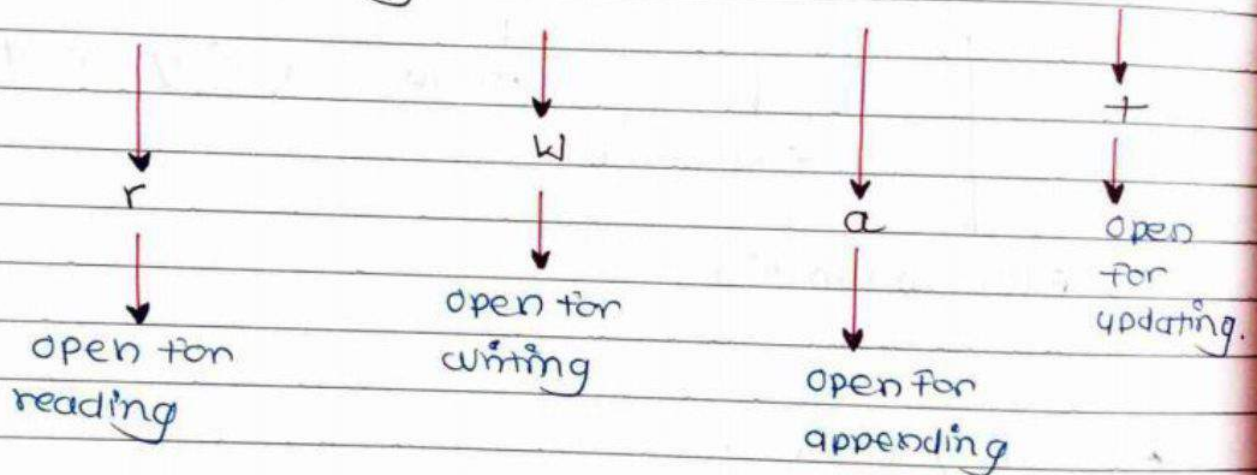 r
open for
reading
w
open for
writing
a
open for
appending
+
open
for
updating.